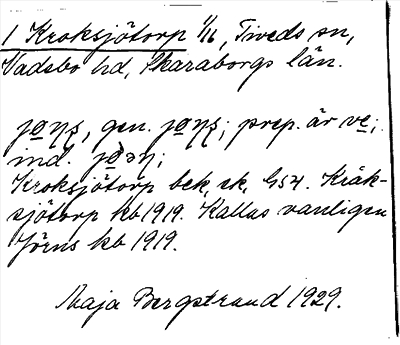 1 Kroksjötorp 1/16, Tiveds sn,
Vadsbo hd, Skaraborgs län.
jo̲ņş, gen. jo̲ņş; prep. är ve̲;
ind. jo̲əņ;
Kroksjötorp bek, ek, G54. Kråk-
sjötorp kb 1919. Kallas vanligen
Jörns kb 1919.
Maja Bergstrand 1929.